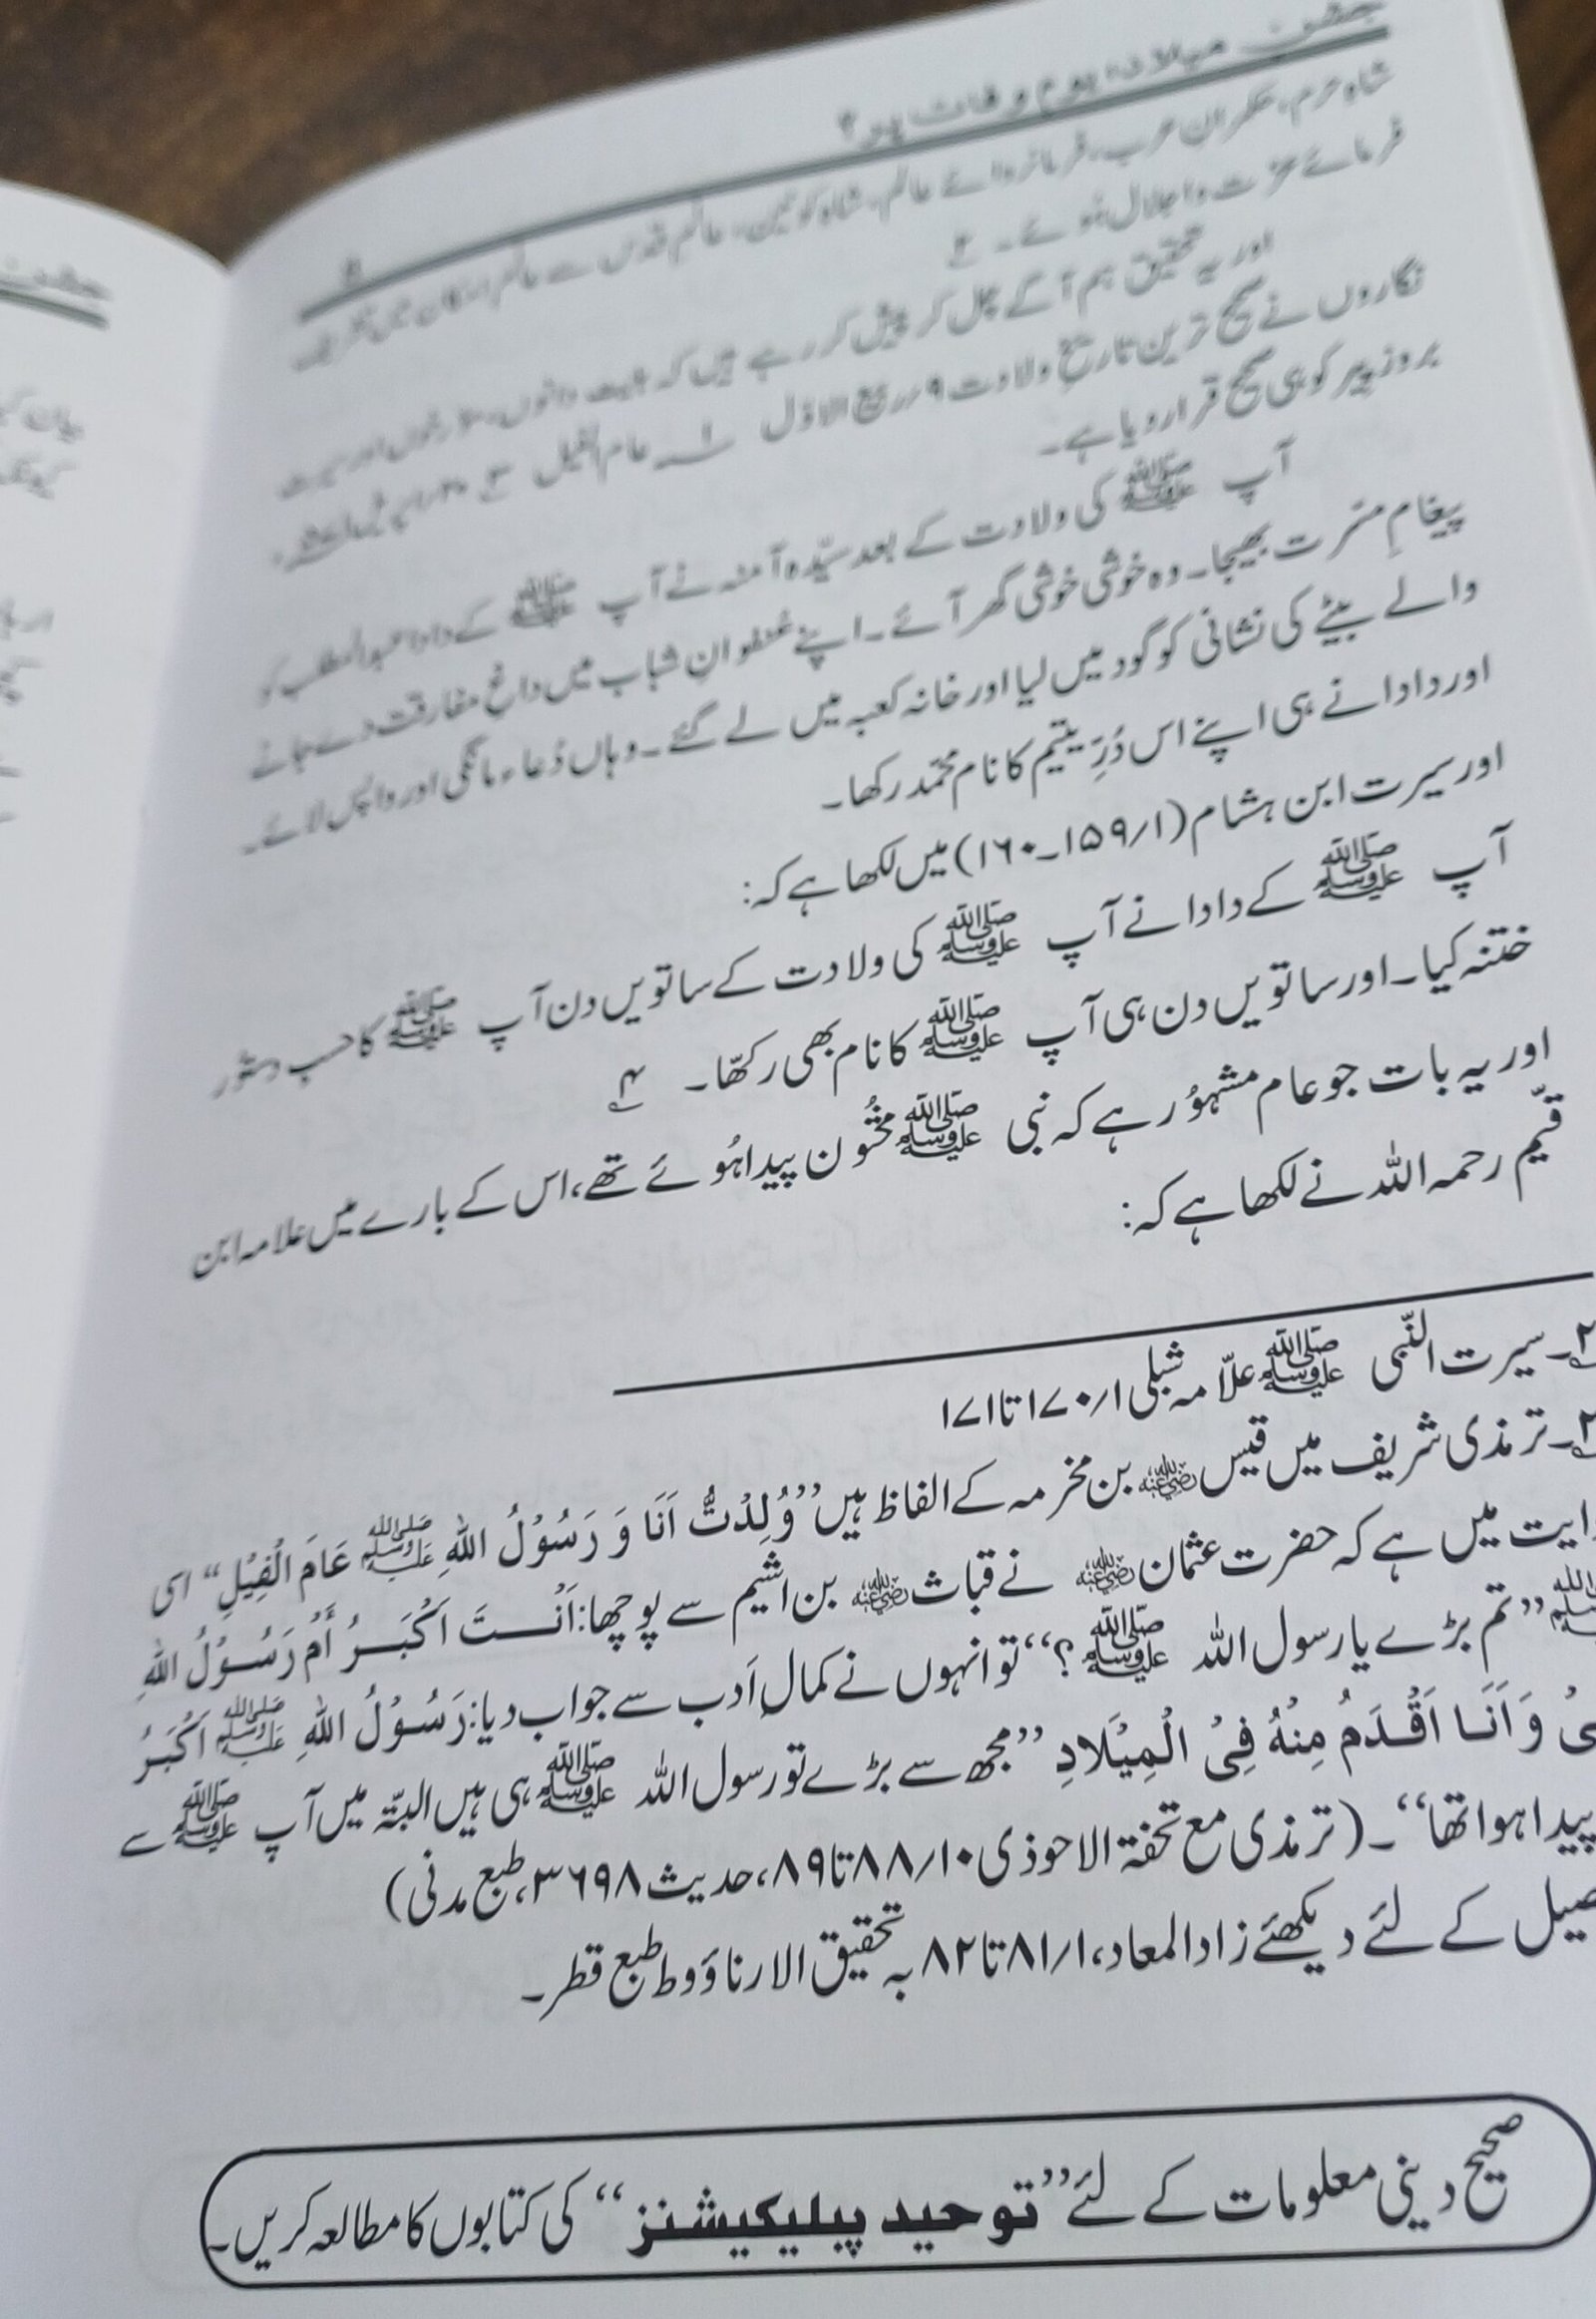 جشن میلاد، یوم وفات پر؟
شاہِ حرم، حکمرانِ عرب، فرمانروائے عالم، شاہِ کونین، عالمِ قدس سے عالمِ امکان میں تشریف
فرمائے عزّت و اجلال ہوئے۔ ۲
اور یہ تحقیق ہم آگے چل کر پیش کر رہے ہیں کہ ہیئت دانوں، مؤرخوں اور سیرت
نگاروں نے صحیح ترین تاریخِ ولادت ۹ ربیع الاوّل ۱ عام الفیل ۳
بروز پیر کو ہی صحیح قرار دیا ہے۔
آپ ﷺ کی ولادت کے بعد سیّدہ آمنہ نے آپ ﷺ کے دادا عبدالمطلب کو
پیغامِ مسّرت بھیجا۔ وہ خوشی خوشی گھر آئے۔ اپنے عُنفوانِ شباب میں داغِ مفارقت دے جانے
والے بیٹے کی نشانی کو گود میں لیا اور خانہ کعبہ میں لے گئے۔ وہاں دُعاء مانگی اور واپس لائے۔
اور دادا نے ہی اپنے اس دُرِّ یتیم کا نام محمّد رکھا۔
اور سیرت ابن ہشام (۱/۱۵۹۔۱۶۰) میں لکھا ہے کہ:
آپ ﷺ کے دادا نے آپ ﷺ کی ولادت کے ساتویں دن آپ ﷺ کا حسب دستور
ختنہ کیا۔ اور ساتویں دن ہی آپ ﷺ کا نام بھی رکھّا۔ ۴
اور یہ بات جو عام مشہوُر ہے کہ نبی ﷺ مختُون پیدا ہُوئے تھے، اس کے بارے میں علامہ ابن
قیّم رحمہ اللہ نے لکھا ہے کہ:
۲۔ سیرت النّبی ﷺ علّامہ شبلی ۱/۱۷۰ تا ۱۷۱
۔ ترمذی شریف میں قیس رضی اللہ عنہ بن مخرمہ کے الفاظ ہیں ’’وُلِدْتُّ اَنَا وَ رَسُوْلُ اللهِ ﷺ عَامَ الْفِیْلِ‘‘ اسی
ایت میں ہے کہ حضرت عثمان رضی اللہ عنہ نے قباث رضی اللہ عنہ بن اشیم سے پوچھا: اَنْتَ اَکْبَرُ أَمْ رَسُوْلُ اللهِ
ﷺ ’’تم بڑے یا رسول اللہ ﷺ؟‘‘ تو انہوں نے کمالِ اَدب سے جواب دیا: رَسُوْلُ اللهِ ﷺ اَکْبَرُ
یْ وَاَنَا اَقْدَمُ مِنْهُ فِیْ الْمِیْلَادِ ’’مجھ سے بڑے تو رسول اللہ ﷺ ہی ہیں البتّہ میں آپ ﷺ سے
پیدا ہوا تھا‘‘۔ (ترمذی مع تحفۃ الاحوذی ۱۰/۸۸ تا ۸۹، حدیث ۳۶۹۸، طبع مدنی)
صیل کے لئے دیکھئے زاد المعاد، ۱/۸۱ تا ۸۲ بہ تحقیق الارناؤوط طبع قطر۔
صحیح دینی معلومات کے لئے ’’توحید پبلیکیشنز‘‘ کی کتابوں کا مطالعہ کریں۔